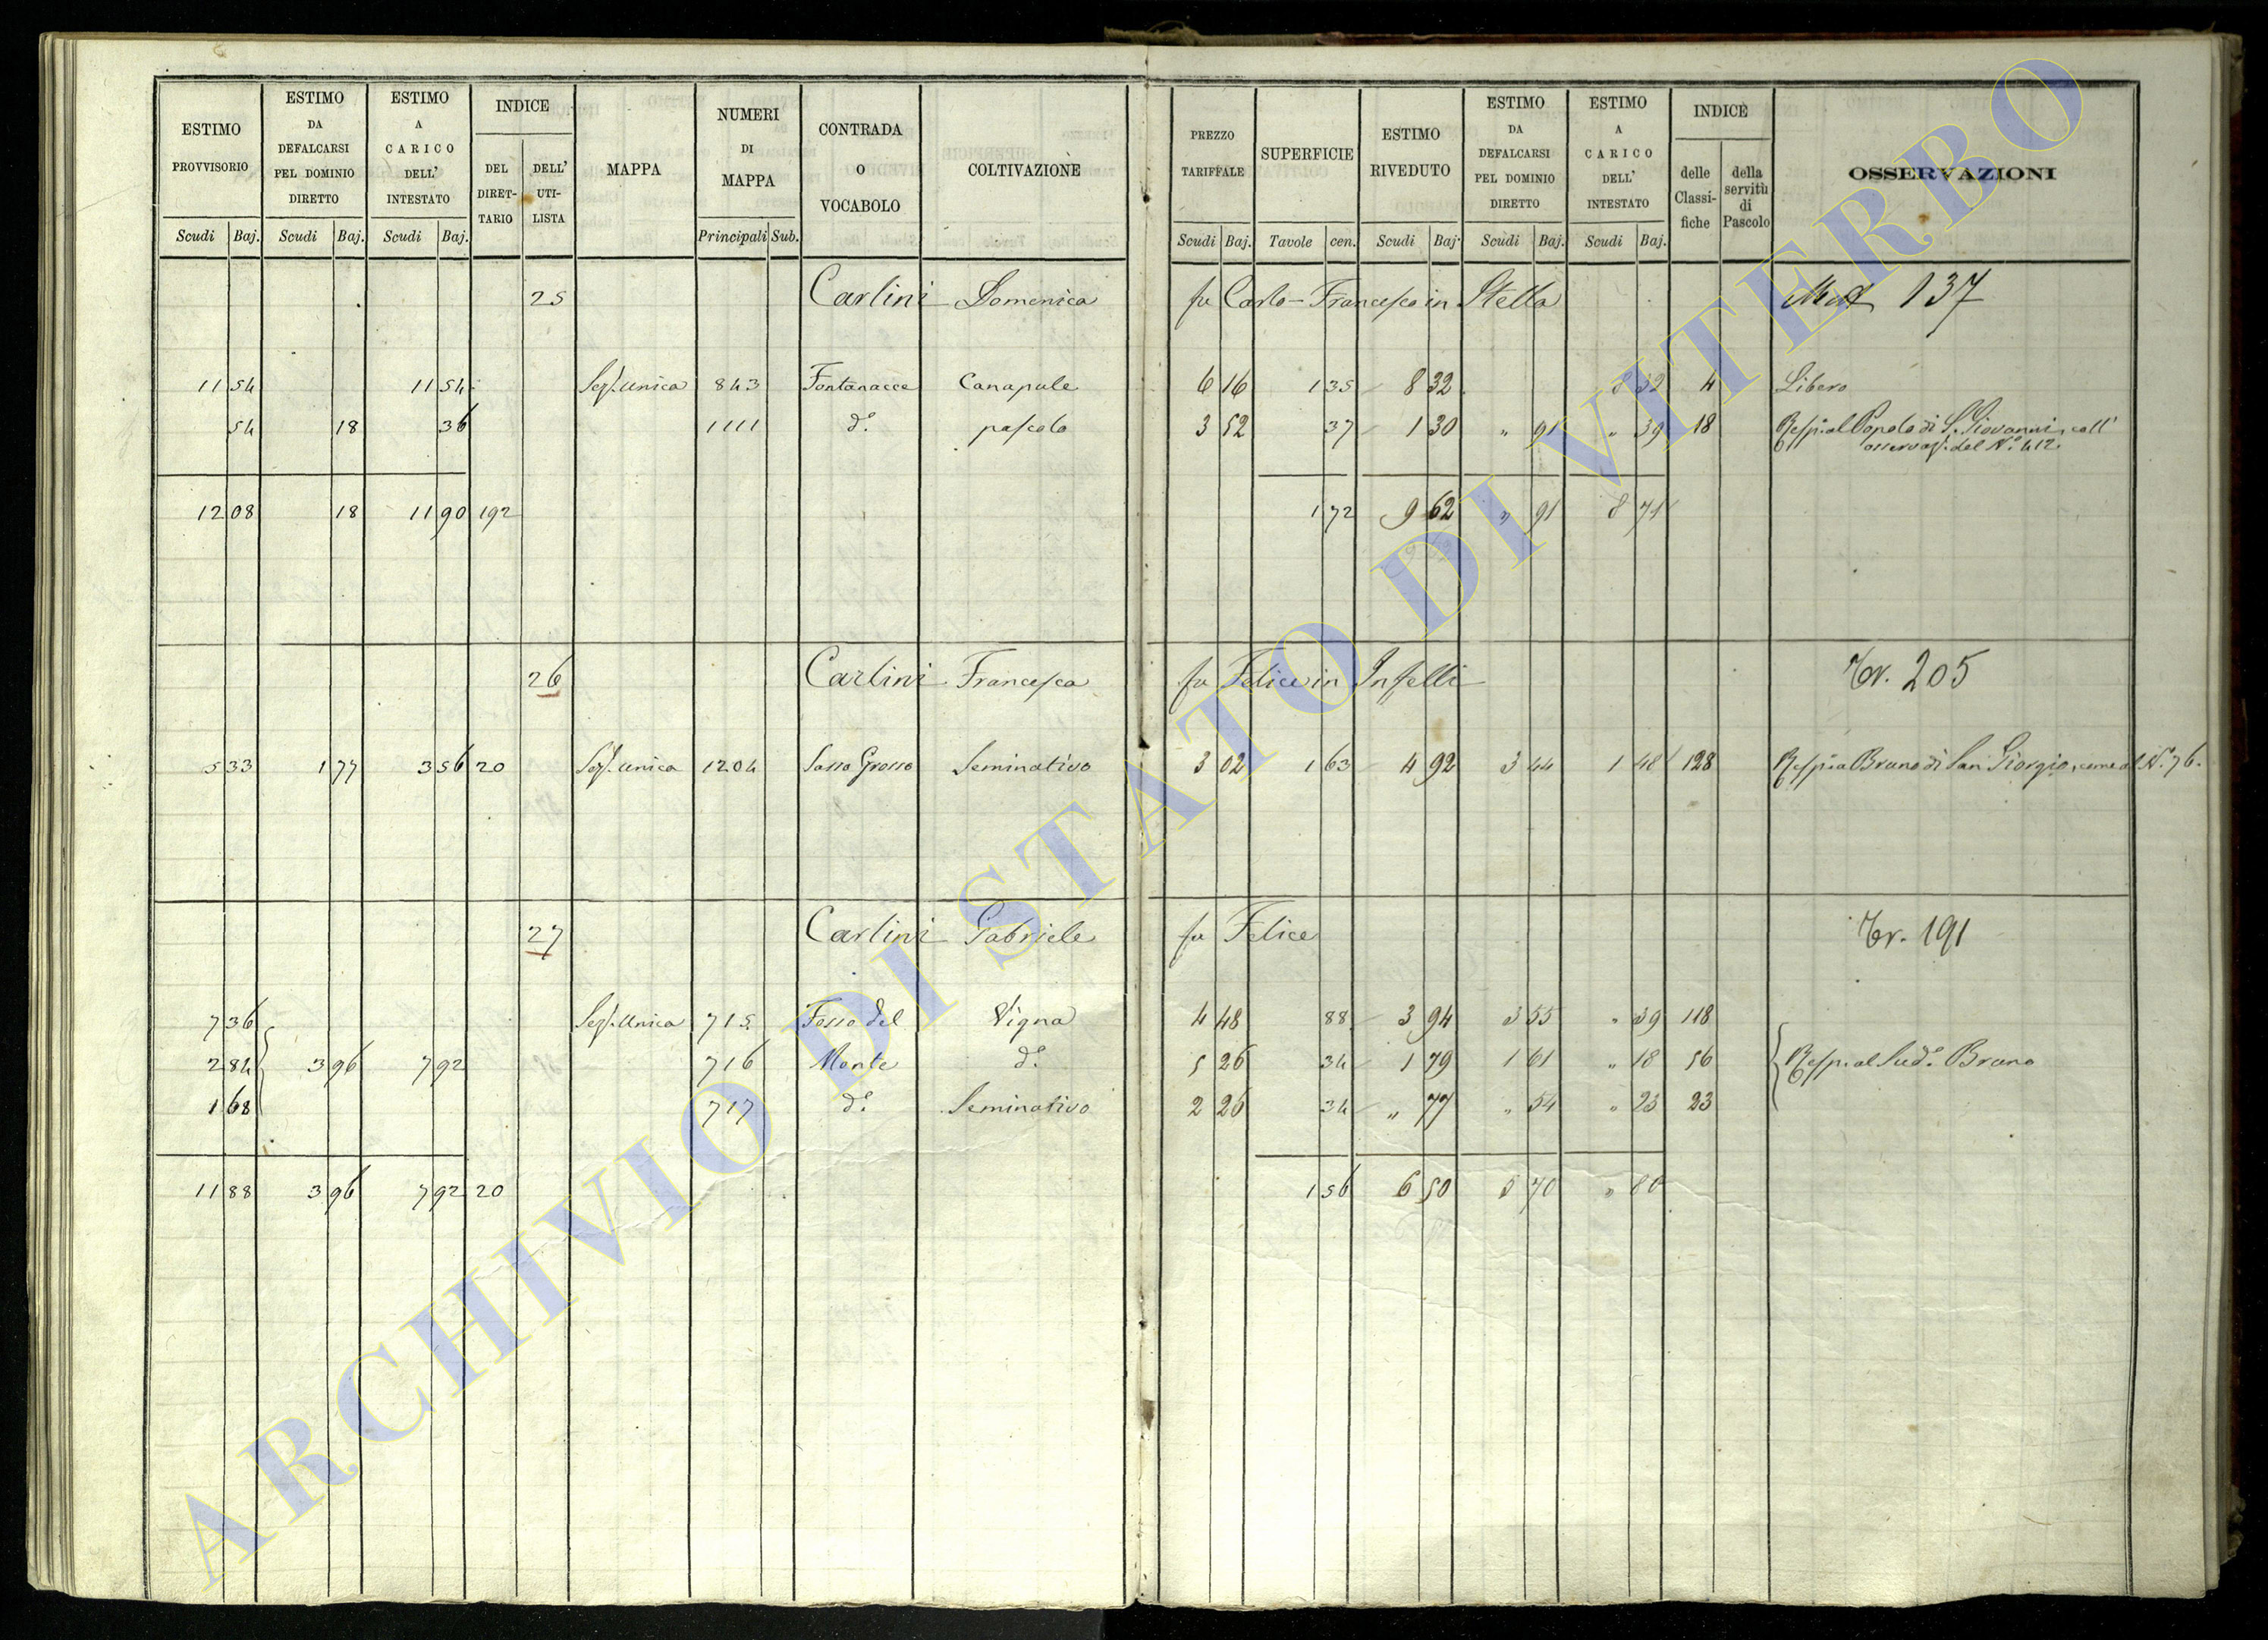 ESTIMO PROVVISORIO Scudi Baj.
ESTIMO DA DEFALCARSI PEL DOMINIO DIRETTO Scudi Baj.
ESTIMO A CARICO DELL' INTESTATO Scudi Baj.
INDICE DEL DIRET-TARIO DELL' UTI-LISTA
MAPPA
NUMERI DI MAPPA Principali Sub.
CONTRADA O VOCABOLO
COLTIVAZIONE
PREZZO TARIFFALE Scudi Baj.
SUPERFICIE Tavole cen.
ESTIMO RIVEDUTO Scudi Baj.
ESTIMO DA DEFALCARSI PEL DOMINIO DIRETTO Scudi Baj.
ESTIMO A CARICO DELL' INTESTATO Scudi Baj.
INDICE delle Classi-fiche della servitù di Pascolo
OSSERVAZIONI
25 Carlini Domenica fu Carlo-Francesco in Stella 137
11 54 11 54 Sez. Unica 843 Fontanacce Canapule 6 16 1 35 8 32 8 32 4 Libero
54 18 36 1111 d.º pascolo 3 52 37 1 30 " 91 " 39 18 Resp. al Popolo di S. Giovanni, coll'
osservaz. del N.º 412
12 08 18 11 90 192 1 72 9 62 " 91 8 71
26 Carlini Francesca fu Felice in Infelli Tr. 205
5 33 1 77 3 56 20 Sez. Unica 1204 Sasso Grosso Seminativo 3 02 1 63 4 92 3 44 1 48 128 Resp. a Bruno di San Giorgio, come al N.º 76.
27 Carlini Gabriele fu Felice Tr. 191
7 36 Sez. Unica 715 Fosso del Vigna 4 48 88 3 94 3 55 " 39 118
2 84 3 96 7 92 716 Monte d.º 5 26 34 1 79 1 61 " 18 56 Resp. al Sud.º Bruno
1 68 717 d.º Seminativo 2 26 34 " 77 " 54 " 23 23
11 88 3 96 7 92 20 1 56 6 50 5 70 " 80
ARCHIVIO DI STATO DI VITERBO